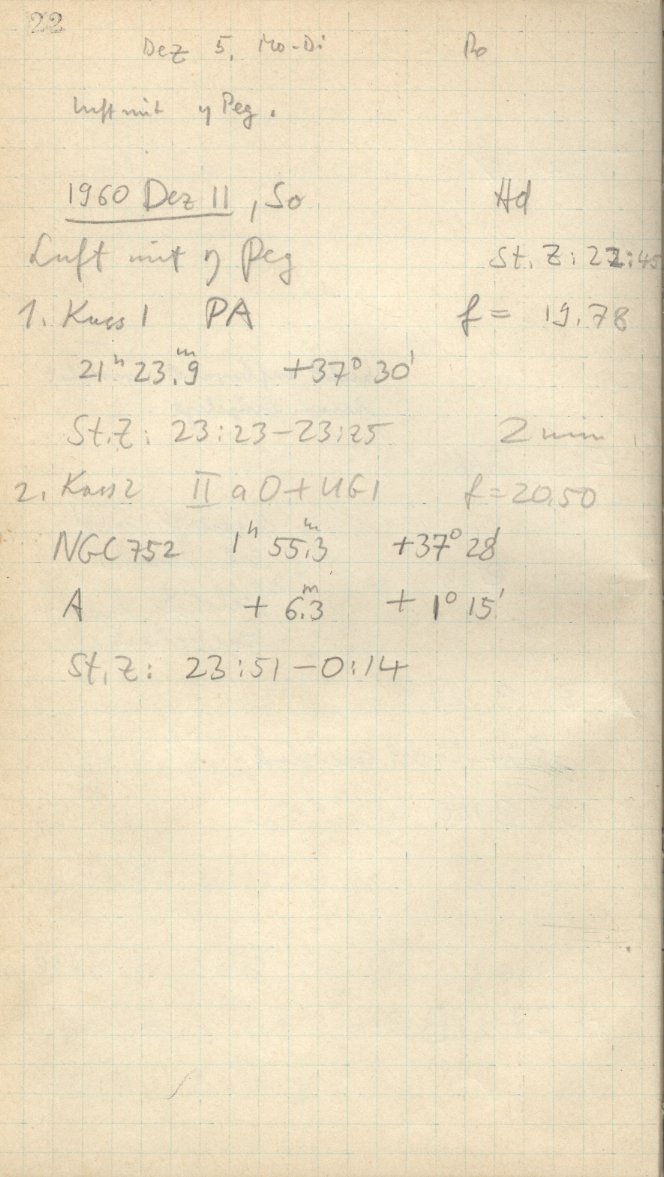 22
Dez 5. Mo-Di Ro
Luft mit η Peg.
1960 Dez 11, So Hd
Luft mit η Peg St.Z: 22:45
1. Kass 1 PA f = 19.78
21ʰ 23.ᵐ9 +37° 30'
St.Z: 23:23-23:25 2 min
2. Kass 2 II a O + UG1 f=20.50
NGC 752 1ʰ 55.ᵐ3 +37° 28'
A + 6.ᵐ3 + 1° 15'
St.Z: 23:51-0:14